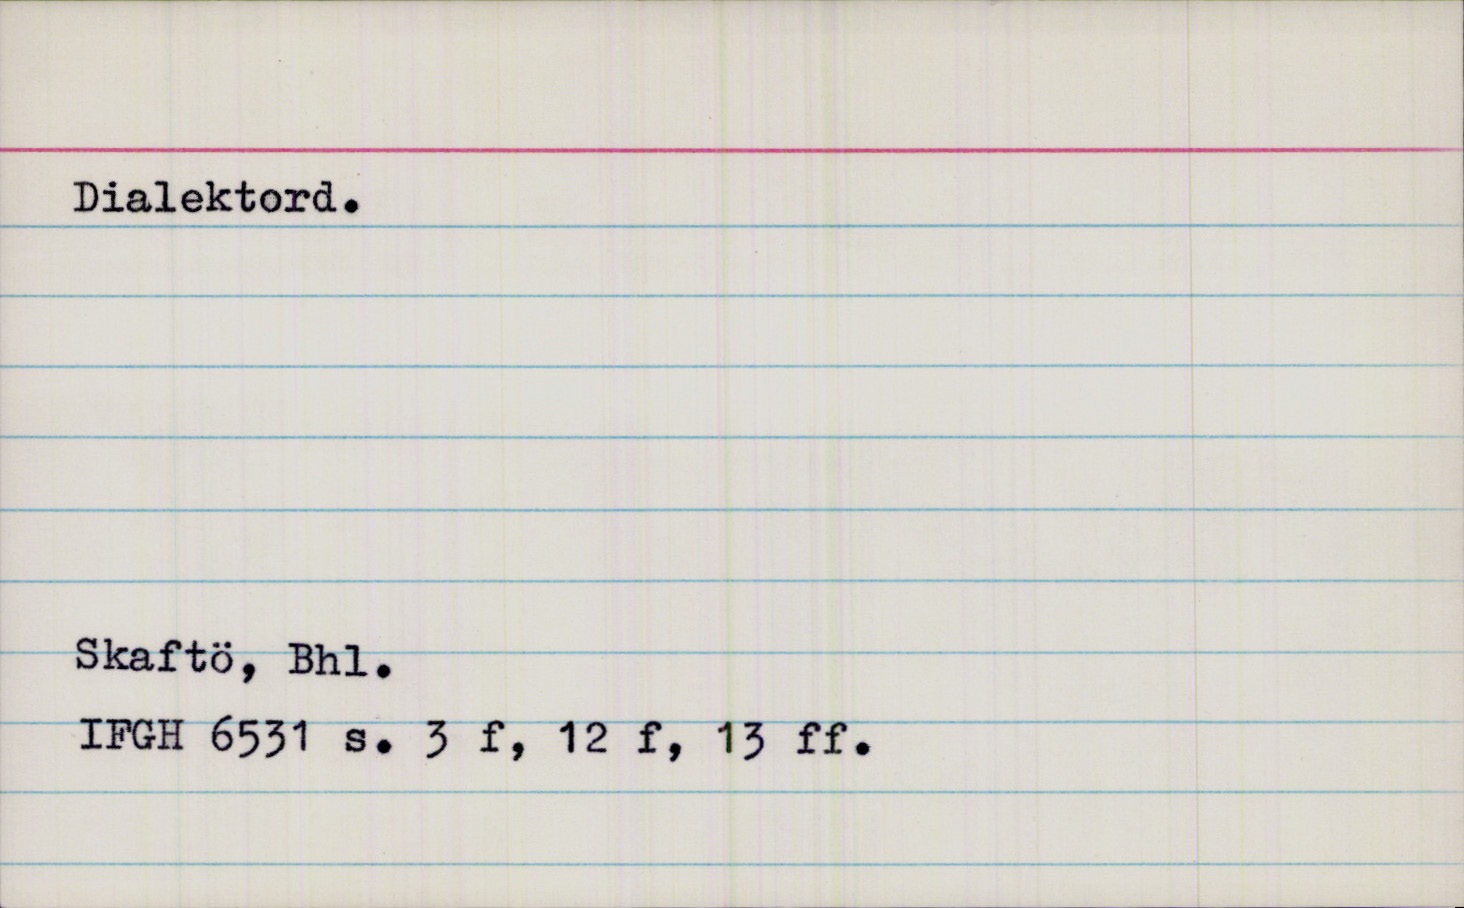 Dialektord.
Skaftö, Bhl.
IFGH 6531 s. 3 f, 12 f, 13 ff.